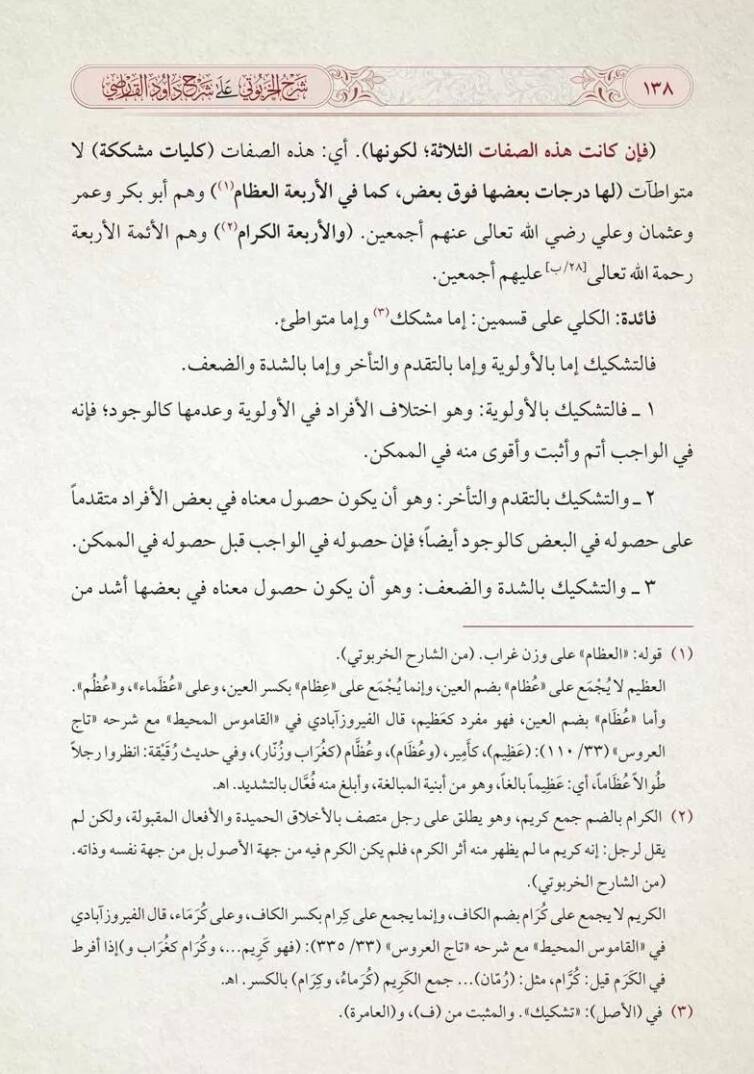 شرح الخربوتي على شرح داود القرصي
١٣٨
(فإن كانت هذه الصفات الثلاثة؛ لكونها). أي: هذه الصفات (كليات مشككة) لا
متواطآت (لها درجات بعضها فوق بعض، كما في الأربعة العظام(١)) وهم أبو بكر وعمر
وعثمان وعلي رضي الله تعالى عنهم أجمعين. (والأربعة الكرام(٢)) وهم الأئمة الأربعة
رحمة الله تعالى[٢٨/ب] عليهم أجمعين.
فائدة: الكلي على قسمين: إما مشكك(٣) وإما متواطئ.
فالتشكيك إما بالأولوية وإما بالتقدم والتأخر وإما بالشدة والضعف.
١ ـ فالتشكيك بالأولوية: وهو اختلاف الأفراد في الأولوية وعدمها كالوجود؛ فإنه
في الواجب أتم وأثبت وأقوى منه في الممكن.
٢ ـ والتشكيك بالتقدم والتأخر: وهو أن يكون حصول معناه في بعض الأفراد متقدماً
على حصوله في البعض كالوجود أيضاً؛ فإن حصوله في الواجب قبل حصوله في الممكن.
٣ ـ والتشكيك بالشدة والضعف: وهو أن يكون حصول معناه في بعضها أشد من
(١) قوله: «العظام» على وزن غراب. (من الشارح الخربوتي).
العظيم لا يُجْمَع على «عُظام» بضم العين، وإنما يُجْمَع على «عِظام» بكسر العين، وعلى «عُظَماء»، و«عُظُم».
وأما «عُظَام» بضم العين، فهو مفرد كعَظيم، قال الفيروزآبادي في «القاموس المحيط» مع شرحه «تاج
العروس» (٣٣/ ١١٠): (عَظِيم)، كأَمِير، (وعُظَام)، وعُظَّام (كغُرَاب وزُنّار)، وفي حديث رُقَيْقة: انظروا رجلاً
طُوالاً عُظَاماً، أي: عَظِيماً بالغاً، وهو من أبنية المبالغة، وأبلغ منه فُعَّال بالتشديد. اهـ.
(٢) الكرام بالضم جمع كريم، وهو يطلق على رجل متصف بالأخلاق الحميدة والأفعال المقبولة، ولكن لم
يقل لرجل: إنه كريم ما لم يظهر منه أثر الكرم، فلم يكن الكرم فيه من جهة الأصول بل من جهة نفسه وذاته.
(من الشارح الخربوتي).
الكريم لا يجمع على كُرَام بضم الكاف، وإنما يجمع على كِرام بكسر الكاف، وعلى كُرَمَاء، قال الفيروزآبادي
في «القاموس المحيط» مع شرحه «تاج العروس» (٣٣/ ٣٣٥): (فهو كَرِيم...، وكُرَام كغُرَاب و)إذا أفرط
في الكَرَم قيل: كُرَّام، مثل: (رُمّان)... جمع الكَرِيم (كُرَماءُ، وكِرَام) بالكسر. اهـ.
(٣) في (الأصل): «تشكيك». والمثبت من (ف)، و(العامرة).